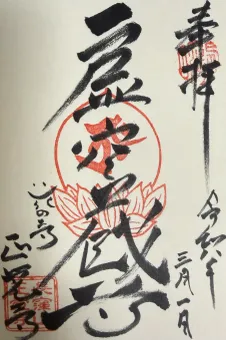 奉拝
令和八年
三月一日
虚空蔵尊
正覚寺